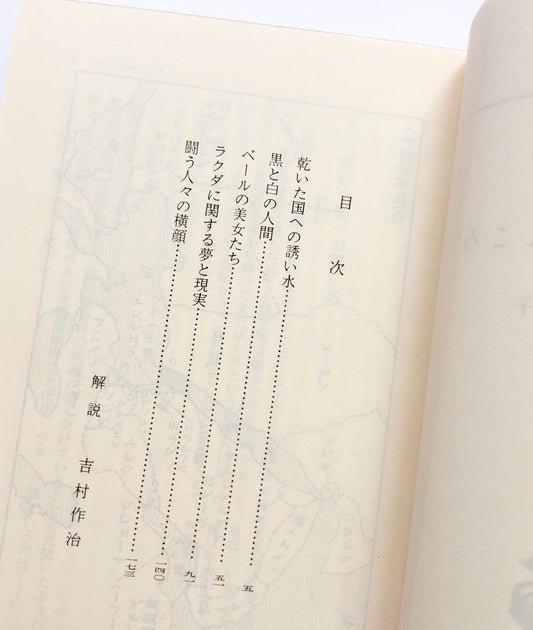 目次
乾いた国への誘い水……………………五
黒と白の人間……………………五一
ベールの美女たち……………………九一
ラクダに関する夢と現実……………………一四〇
闘う人々の横顔……………………一七三
解説 吉村作治